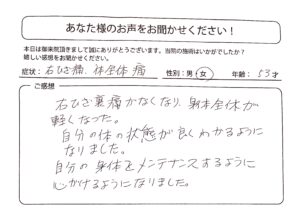 あなた様のお声をお聞かせください！
本日は御来院頂きまして誠にありがとうございます。当院の施術はいかがでしたか？
嬉しい感想をお聞かせください。
症状：右ひざ痛、体全体痛　性別：男・女　年齢：53才
ご感想
右ひざ裏痛がなくなり、身体全体が
軽くなった。
自分の体の状態が良くわかるように
なりました。
自分の身体をメンテナンスするように
心がけるようになりました。